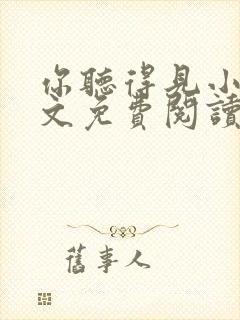 你聽得見小
文免費閱讀
舊事人